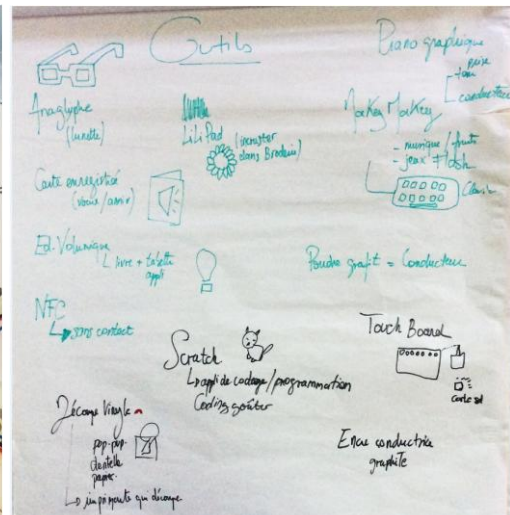 Outils
Piano graphique
conducteur
Anaglyphe
(lunette)
LiLiPad
(incruster
dans Broderie)
Makey Makey
- musique / fruits
- jeux Flash
Carte enregistrée
Clavier
Ed. Volumique
↳ livre + tablette
appli
Poudre grafit = Conducteur
NFC
↳ sans contact
Scratch
↳ appli de codage / programmation
Coding goûter
Touch Board
carte sd
Découpe Vinyle
pop-pup
dentelle
papier
↳ imprimante qui découpe
Encre conductrice
graphite